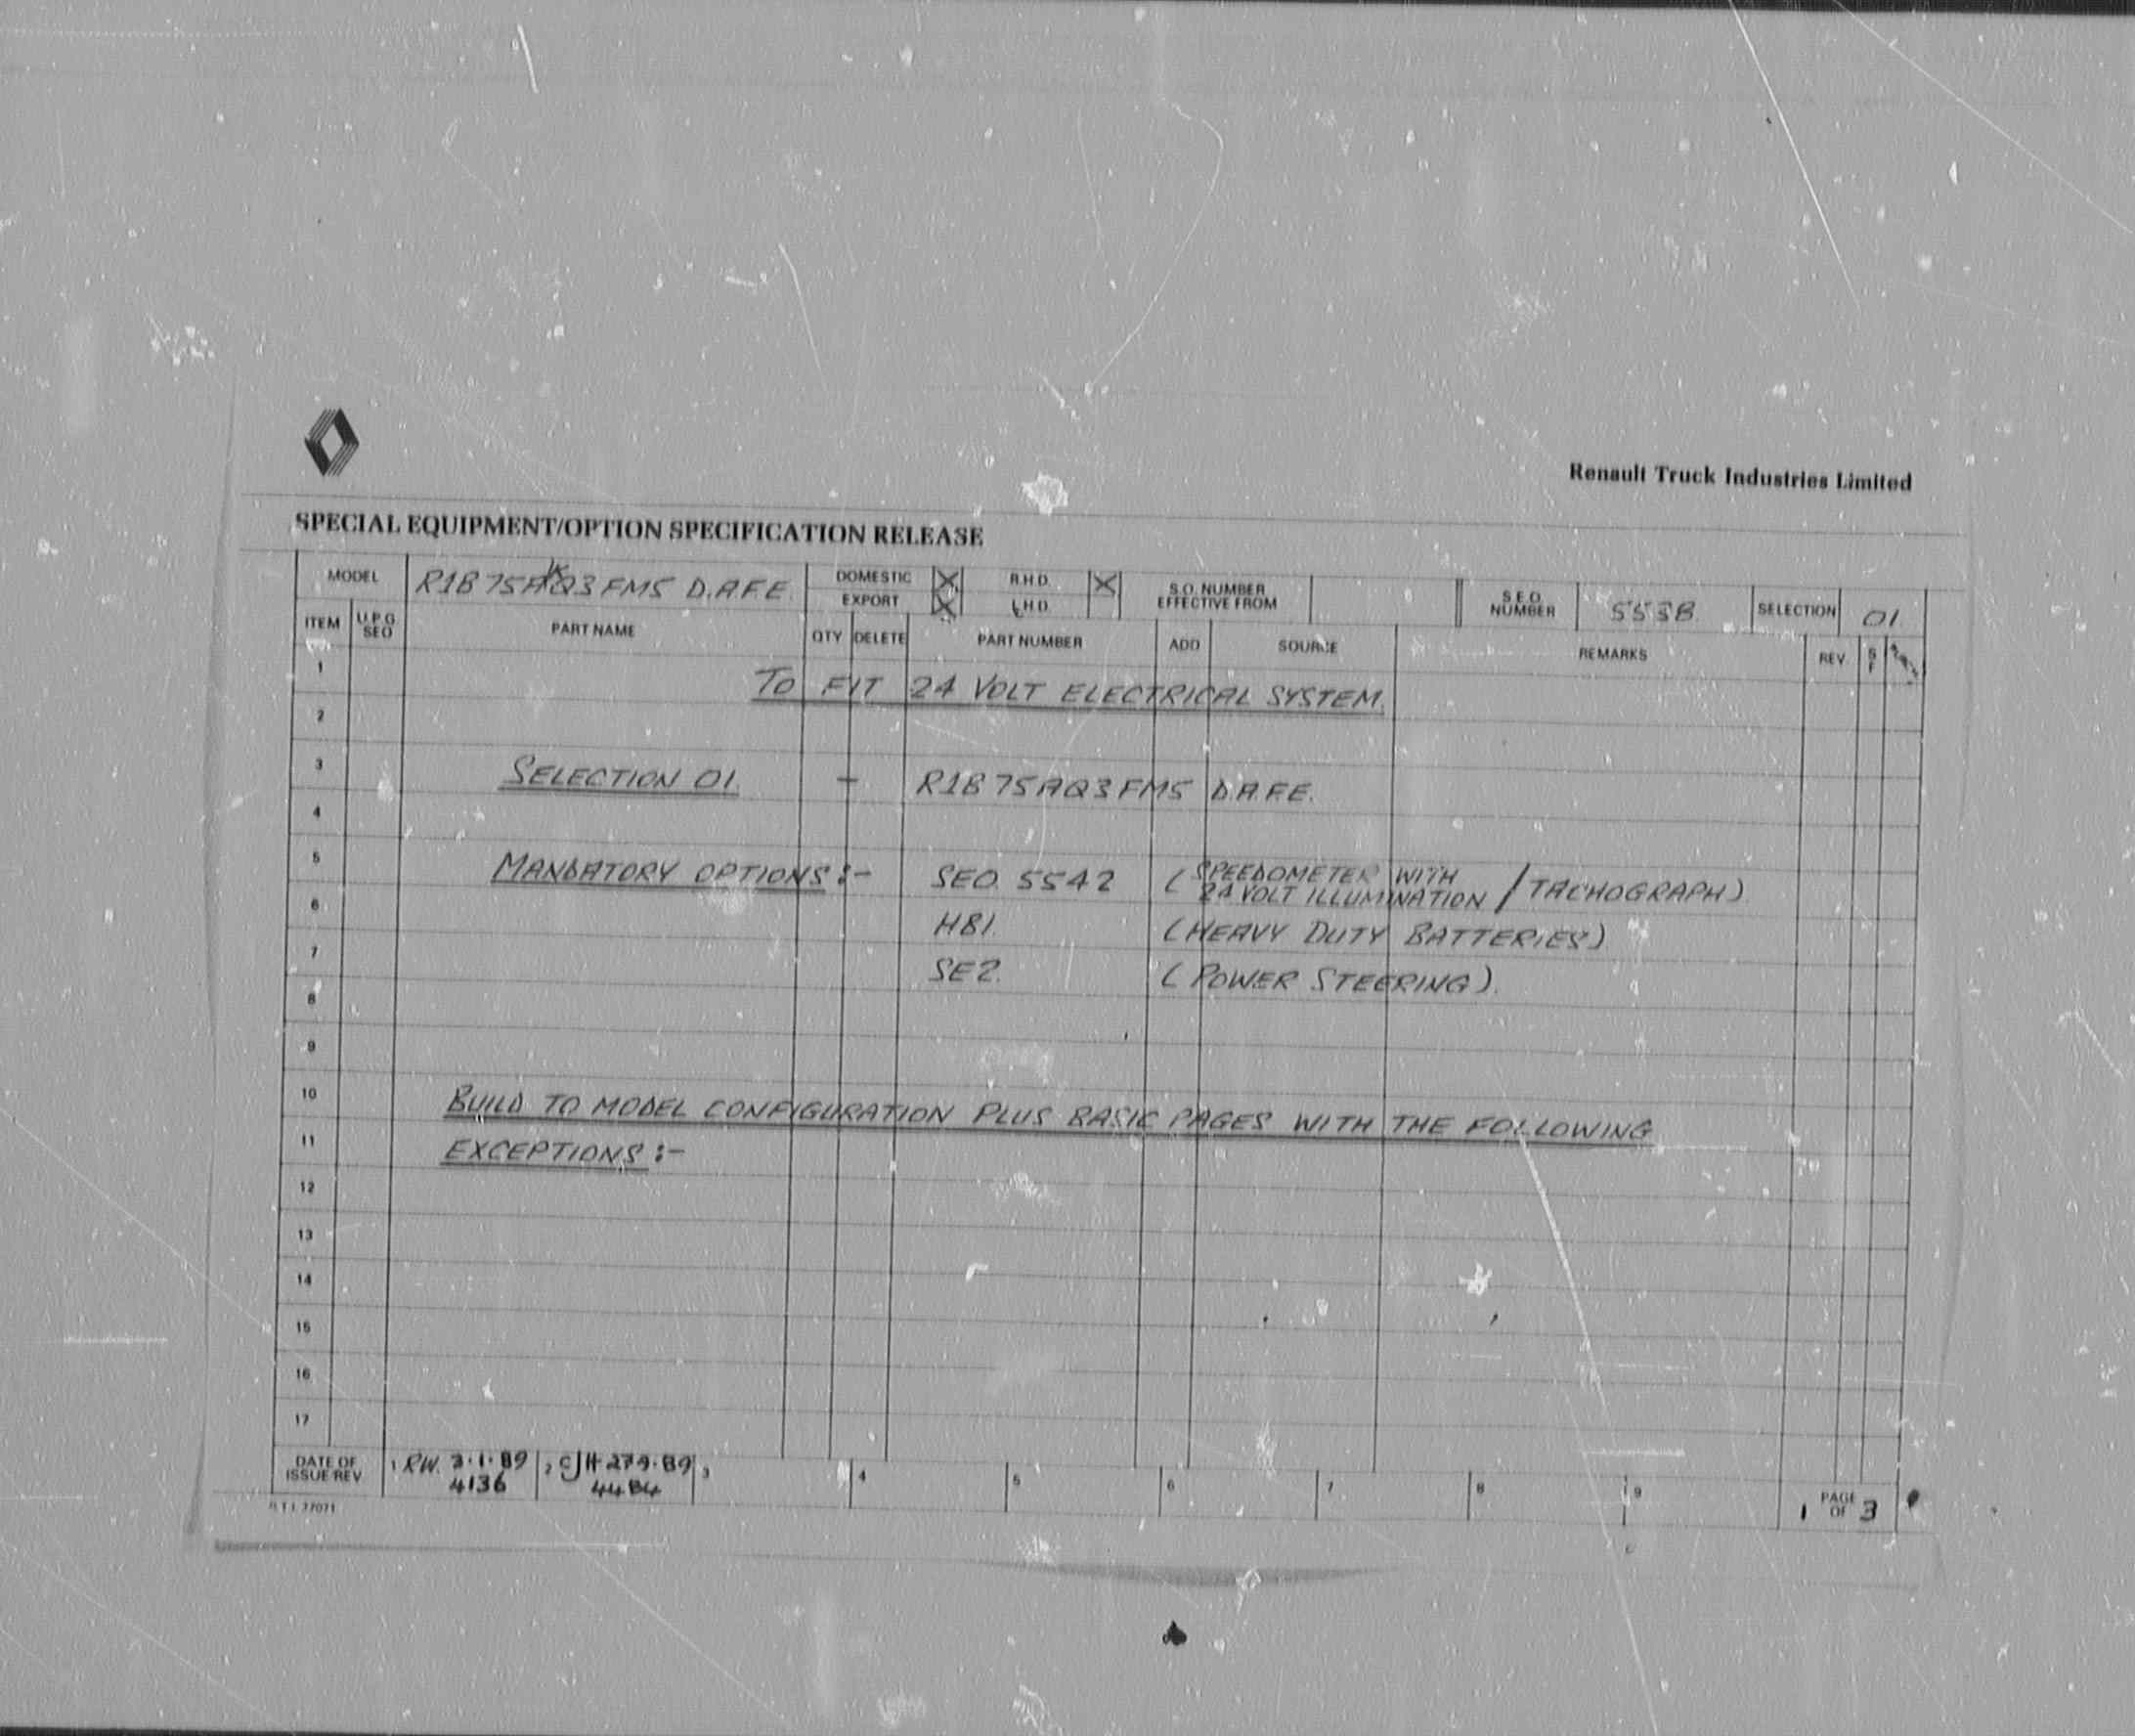 Renault Truck Industries Limited
SPECIAL EQUIPMENT/OPTION SPECIFICATION RELEASE
MODEL R1B75AQ3FMS D.A.F.E. DOMESTIC X R.H.D. X S.O. NUMBER EFFECTIVE FROM S.E.O. NUMBER 553B SELECTION 01
EXPORT X L.H.D.
ITEM U.P.G SEO PART NAME QTY DELETE PART NUMBER ADD SOURCE REMARKS REV S F
1
TO FIT 24 VOLT ELECTRICAL SYSTEM.
2
3 SELECTION 01. - R1B75AQ3FMS D.A.F.E.
4
5 MANDATORY OPTIONS :- SEO. 5542 (SPEEDOMETER WITH
24 VOLT ILLUMINATION / TACHOGRAPH)
6 HB1. (HEAVY DUTY BATTERIES)
7 SE2. (POWER STEERING).
8
9
10 BUILD TO MODEL CONFIGURATION PLUS BASIC PAGES WITH THE FOLLOWING
11 EXCEPTIONS :-
12
13
14
15
16
17
DATE OF ISSUE/REV. 1 RW. 3.1.89 2 CJH 27.9.89 3 4 5 6 7 8 9 1 PAGE OF 3
4136 4484
R.T.I. 77071